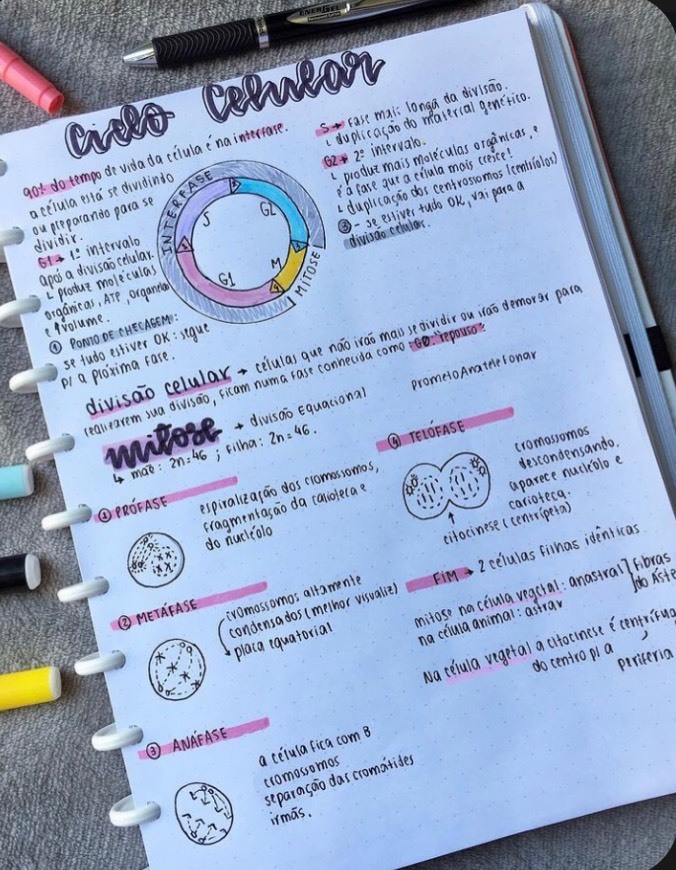 ENERGEL
Ciclo Celular
90% do tempo de vida da célula é na interfase.
a célula está se dividindo
ou preparando para se
dividir.
G1 → 1º intervalo
após a divisão celular.
↳ produz moléculas
orgânicas, ATP, organelas
e ↑ volume.
① PONTO DE CHECAGEM:
se tudo estiver OK: segue
p/ a próxima fase.
INTERFASE
S
G2
G1
M
MITOSE
S → Fase mais longa da divisão.
↳ duplicação do material genético.
G2 → 2º intervalo.
↳ produz mais moléculas orgânicas, e
é a fase que a célula mais cresce!
↳ duplicação dos centrossomos (centríolos)
③ - se estiver tudo OK, vai para a
divisão celular.
divisão celular → células que não irão mais se dividir ou irão demorar para
realizarem sua divisão, ficam numa fase conhecida como: G0: repouso:
prometoAnatelefonar
mitose → divisão equacional
↳ mãe: 2n=46 ; filha: 2n=46.
① PRÓFASE
espiralização dos cromossomos,
fragmentação da carioteca e
do nucléolo
② METÁFASE
cromossomos altamente
condensados (melhor visualiz)
placa equatorial
③ ANÁFASE
a célula fica com 8
cromossomos
separação das cromátides
irmãs.
④ TELÓFASE
cromossomos
descondensando.
aparece nucléolo e
carioteca.
citocinese (centrípeta)
FIM → 2 células filhas idênticas
mitose na célula vegetal: anastral
na célula animal: astral
fibras
do Áste
Na célula vegetal a citocinese é centrífuga
do centro p/ a
periferia